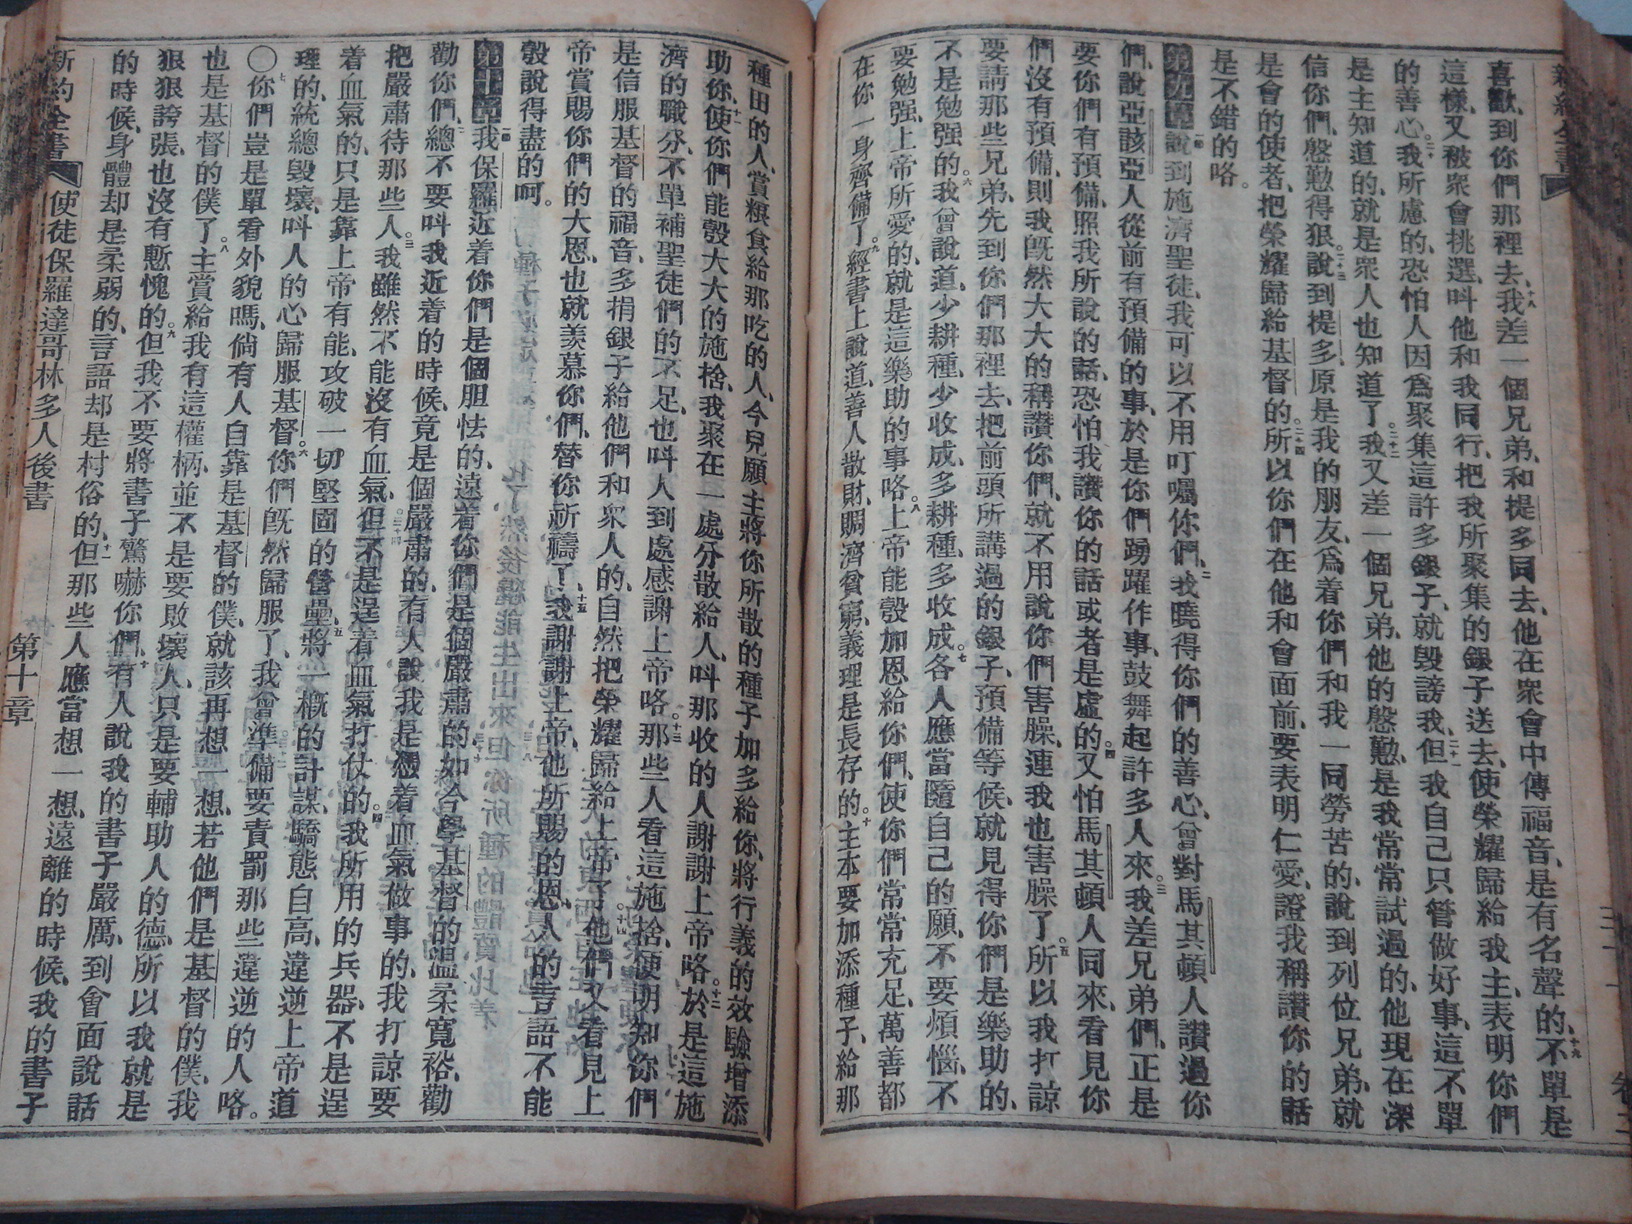 喜歡、到你們那裡去、十八我差一個兄弟、和提多同去、他在衆會中傳福音、是有名聲的、十九不單是
這樣、又被衆會挑選、呌他和我同行、把我所聚集的銀子送去、使榮耀歸給我主、表明你們
的善心。二十我所慮的、恐怕人因爲聚集這許多銀子、就毀謗我、二十一但我自己只管做好事、這不單
是主知道的、就是衆人也知道了。二十二我又差一個兄弟、他的慇懃、是我常常試過的、他現在深
信你們、慇懃得狠。二十三說到提多、原是我的朋友、爲着你們和我一同勞苦的、說到列位兄弟、就
是會的使者、把榮耀歸給基督的。二十四所以你們在他和會面前、要表明仁愛、證我稱讚你的話
是不錯的咯。
第九章 一說到施濟聖徒、我可以不用叮囑你們、二我曉得你們的善心、曾對馬其頓人讚過你
們、說亞該亞人從前有預備的事、於是你們踴躍作事、鼓舞起許多人來。三我差兄弟們、正是
要你們有預備、照我所說的話、恐怕我讚你的話或者是虛的。四又怕馬其頓人同來、看見你
們沒有預備、則我旣然大大的稱讚你們、就不用說你們害臊、連我也害臊了。五所以我打諒
要請那些兄弟、先到你們那裡去、把前頭所講過的銀子、預備等候、就見得你們是樂助的、
不是勉强的。六我曾說道、少耕種、少收成、多耕種、多收成。七各人應當隨自己的願、不要煩惱、不
要勉强、上帝所愛的、就是這樂助的事咯。八上帝能彀加恩給你們、使你們常常充足、萬善都
在你一身齊備了。九經書上說道、善人散財、賙濟貧窮、義理是長存的。十主本要加添種子、給那
種田的人、賞糧食給那吃的人、今見願主將你所散的種子加多給你、將行義的效驗增添
助你、十一使你們能彀大大的施捨、我聚在一處分散給人、呌那收的人謝謝上帝咯。十二於是這施
濟的職分、不單補聖徒們的不足、也呌人到處感謝上帝咯。十三那些人看這施捨、便明知你們
是信服基督的福音、多捐銀子給他們和衆人的、自然把榮耀歸給上帝了。十四他們又看見上
帝賞賜你們的大恩、也就羨慕你們、替你祈禱了、十五念謝謝上帝、他所賜的恩、人的言語不能
彀說得盡的呵。
第十章 一我保羅近着你們是個胆怯的、遠着你們是個嚴肅的、如今學基督的溫柔寬裕、勸
勸你們、二總不要呌我近着的時候、竟是個嚴肅的、有人說我是憑着血氣做事的、我打諒要
把嚴肅待那些人。三我雖然不能沒有血氣、但不是逞着血氣打仗的。四我所用的兵器、不是逞
着血氣的、只是靠上帝有能、攻破一切堅固的營壘、五將一概的計謀、驕態自高、違逆上帝道
理的、統總毀壞、呌人的心歸服基督。六你們旣然歸服了、我會準備要責罰那些違逆的人咯。
〇七你們豈是單看外貌嗎、倘有人自靠是基督的僕、就該再想一想、若他們是基督的僕、我
也是基督的僕了。八主賞給我有這權柄、並不是要敗壞人、只是要輔助人的德、所以我就是
狠狠誇張、也沒有慙愧的。九但我不要將書子驚嚇你們、十有人說我的書子嚴厲、到會面說話
的時候、身體却是柔弱的、言語却是村俗的、十一但那些人應當想一想、遠離的時候、我的書子
新約全書 使徒保羅達哥林多人後書 第十章